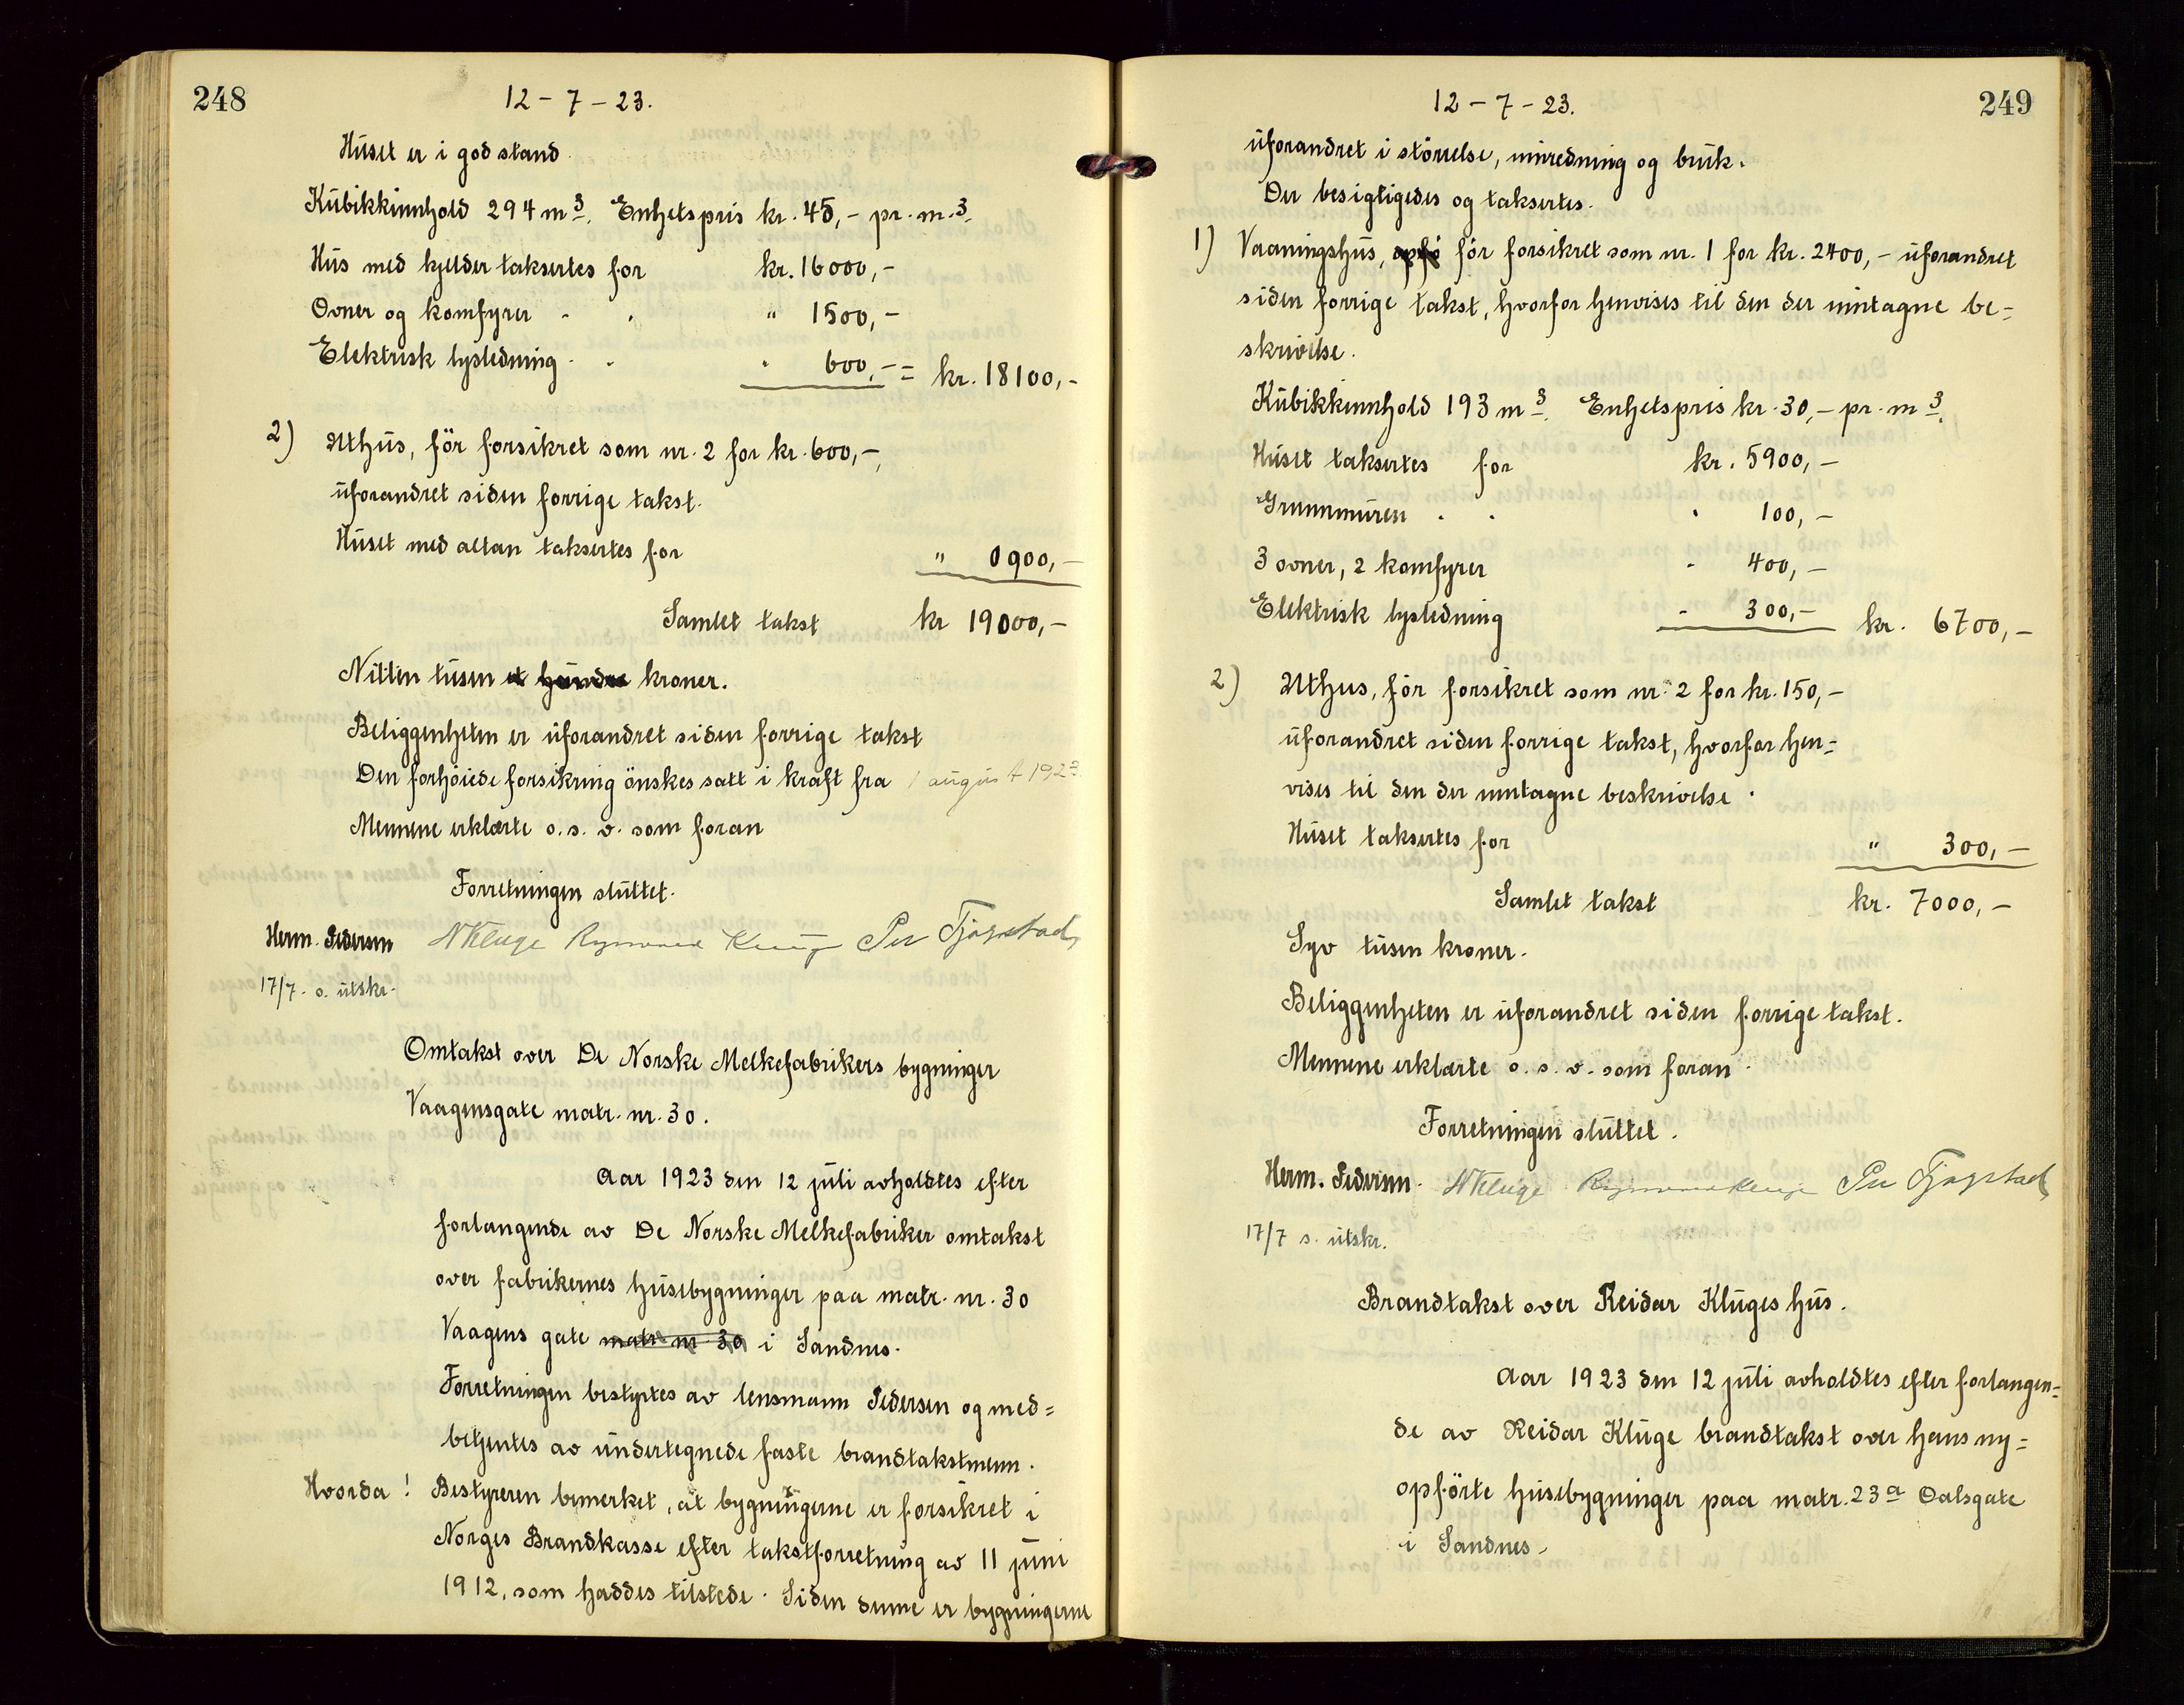 248
12 - 7 - 23.
Huset er i god stand.
Kubikkinnhold 294 m3. Enhetspris kr. 45,- pr. m.3.
Hus med kjelder taksertes for kr. 16000,-
Ovner og komfyrer " " " 1500,-
Elektrisk lysledning " " " 600,- = kr. 18100,-
2) Uthus, för forsikret som nr. 2 for kr. 600,-,
uforandret siden forrige takst.
Huset med altan taksertes for " 0900,-
Samlet takst kr 19000,-
Nitten tusen et hundre kroner.
Beliggenheten er uforandret siden forrige takst
Den forhöiede forsikring önskes satt i kraft fra 1 august 1923.
Mennene erklærte o. s. v. som foran
Forretningen sluttet.
Herm. Pedersen N Kluge Rasmus Kluge Per Tjågstad
17/7. s. utskr.
Omtakst over De Norske Melkefabrikers bygninger
Vaagensgate matr. nr. 30.
Aar 1923 den 12 juli avholdtes efter
forlangende av De Norske Melkefabriker omtakst
over fabrikernes husebygninger paa matr. nr. 30
Vaagens gate matr. nr 30 i Sandnes.
Forretningen bestyrtes av lensmann Pedersen og med=
betjentes av undertegnede faste brandtakstmenn.
Hvorda! Bestyreren bemerket, at bygningerne er forsikret i
Norges Brandkasse efter takstforretning av 11 juni
1912, som haddes tilstede. Siden denne er bygningerne
249
12 - 7 - 23.
uforandret i störrelse, innredning og bruk.
Der besigtigedes og taksertes.
1) Vaaningshus, opfö för forsikret som nr. 1 for kr. 2400,- uforandret
siden forrige takst, hvorfor henvises til den der inntagne be=
skrivelse.
Kubikkinnhold 193 m3. Enhetspris kr. 30,- pr. m3.
Huset taksertes for kr. 5900,-
Grunnmuren " " " 100,-
3 ovner, 2 komfyrer " 400,-
Elektrisk lysledning " 300,- kr. 6700,-
2) Uthus, för forsikret som nr. 2 for kr. 150,-
uforandret siden forrige takst, hvorfor hen=
vises til den der inntagne beskrivelse.
Huset taksertes for " 300,-
Samlet takst kr. 7000,-
Syv tusen kroner.
Beliggenheten er uforandret siden forrige takst.
Mennene erklærte o. s. v. som foran.
Forretningen sluttet.
Herm. Pedersen. N Kluge Rasmus Kluge Per Tjågstad
17/7 s. utskr.
Brandtakst over Reidar Kluges hus.
Aar 1923 den 12 juli avholdtes efter forlangen=
de av Reidar Kluge brandtakst over hans ny=
opförte husebygninger paa matr. 23a Oalsgate
i Sandnes.